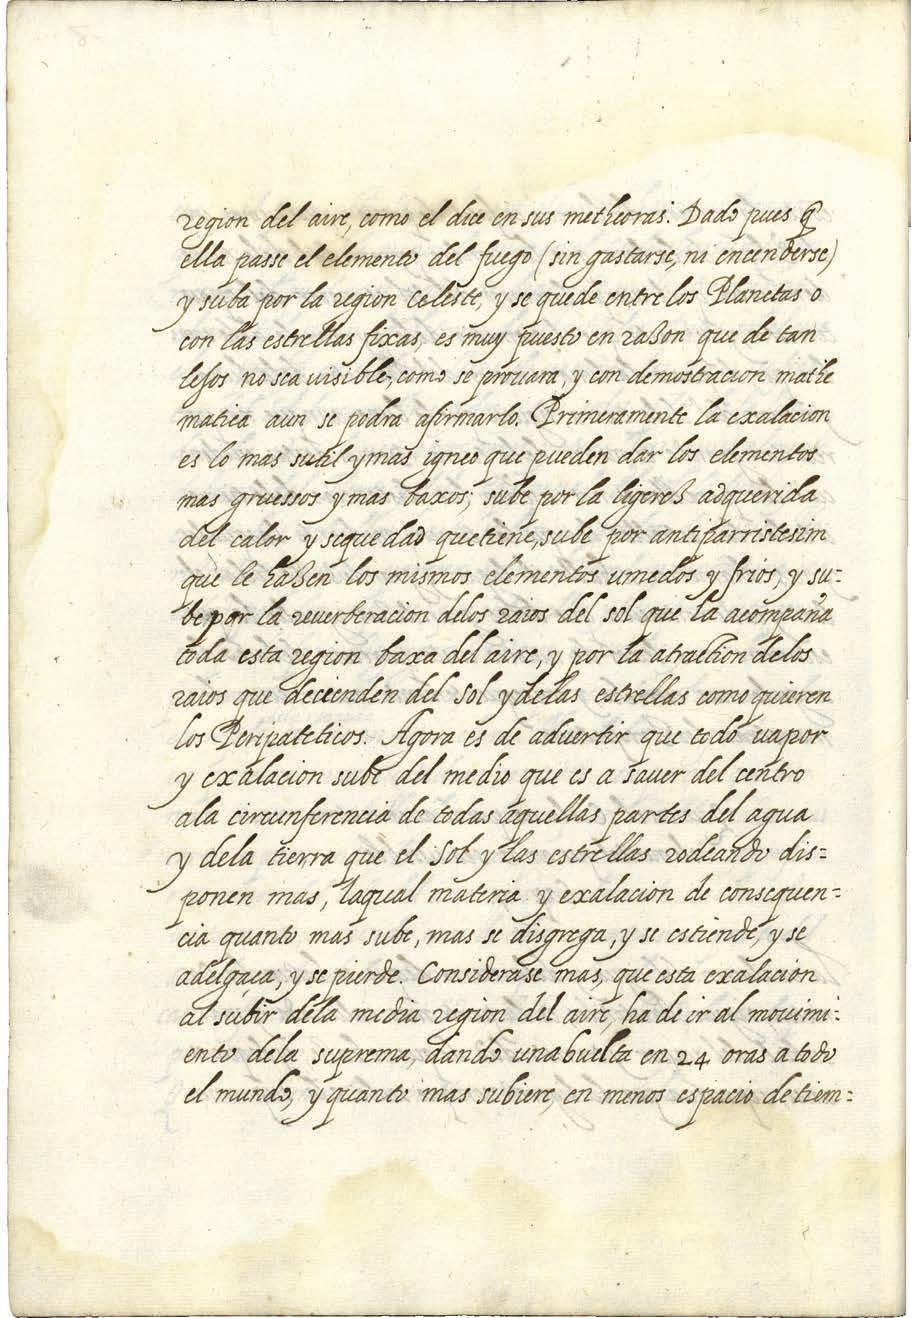 region del aire, como el dice en sus metheoras. Dado pues q̃
ella passe el elemento del fuego (sin gastarse, ni encenderse)
y suba por la region celeste, y se quede entre los Planetas o
con las estrellas fixas, es muy puesto en razon que de tan
lejos no sea visible, como se prouara, y con demostracion mathe
matica aun se podra afirmarlo. Primeramente la exalacion
es lo mas sutil y mas igneo que pueden dar los elementos
mas gruessos y mas baxos; sube por la ligerez adquerida
del calor y sequedad que tiene, sube por antiparristesim
que le hazen los mismos elementos umedos y frios, y su=
be por la reuerberacion delos raios del sol que la acompaña
toda esta region baxa del aire, y por la atraction delos
raios que decienden del Sol y delas estrellas como quieren
los Peripateticos. Agora es de aduertir que todo uapor
y exalacion sube del medio que es a sauer del centro
ala circunferencia de todas aquellas partes del agua
y dela tierra que el Sol y las estrellas rodeando dis=
ponen mas, laqual materia y exalacion de consequen=
cia quanto mas sube, mas se disgrega, y se estiende, y se
adelgaça, y se pierde. Considerase mas, que esta exalacion
al subir dela media region del aire, ha de ir al mouimi=
ento dela suprema, dando una buelta en 24 oras a todo
el mundo, y quanto mas subiere, en menos espacio de tiem=